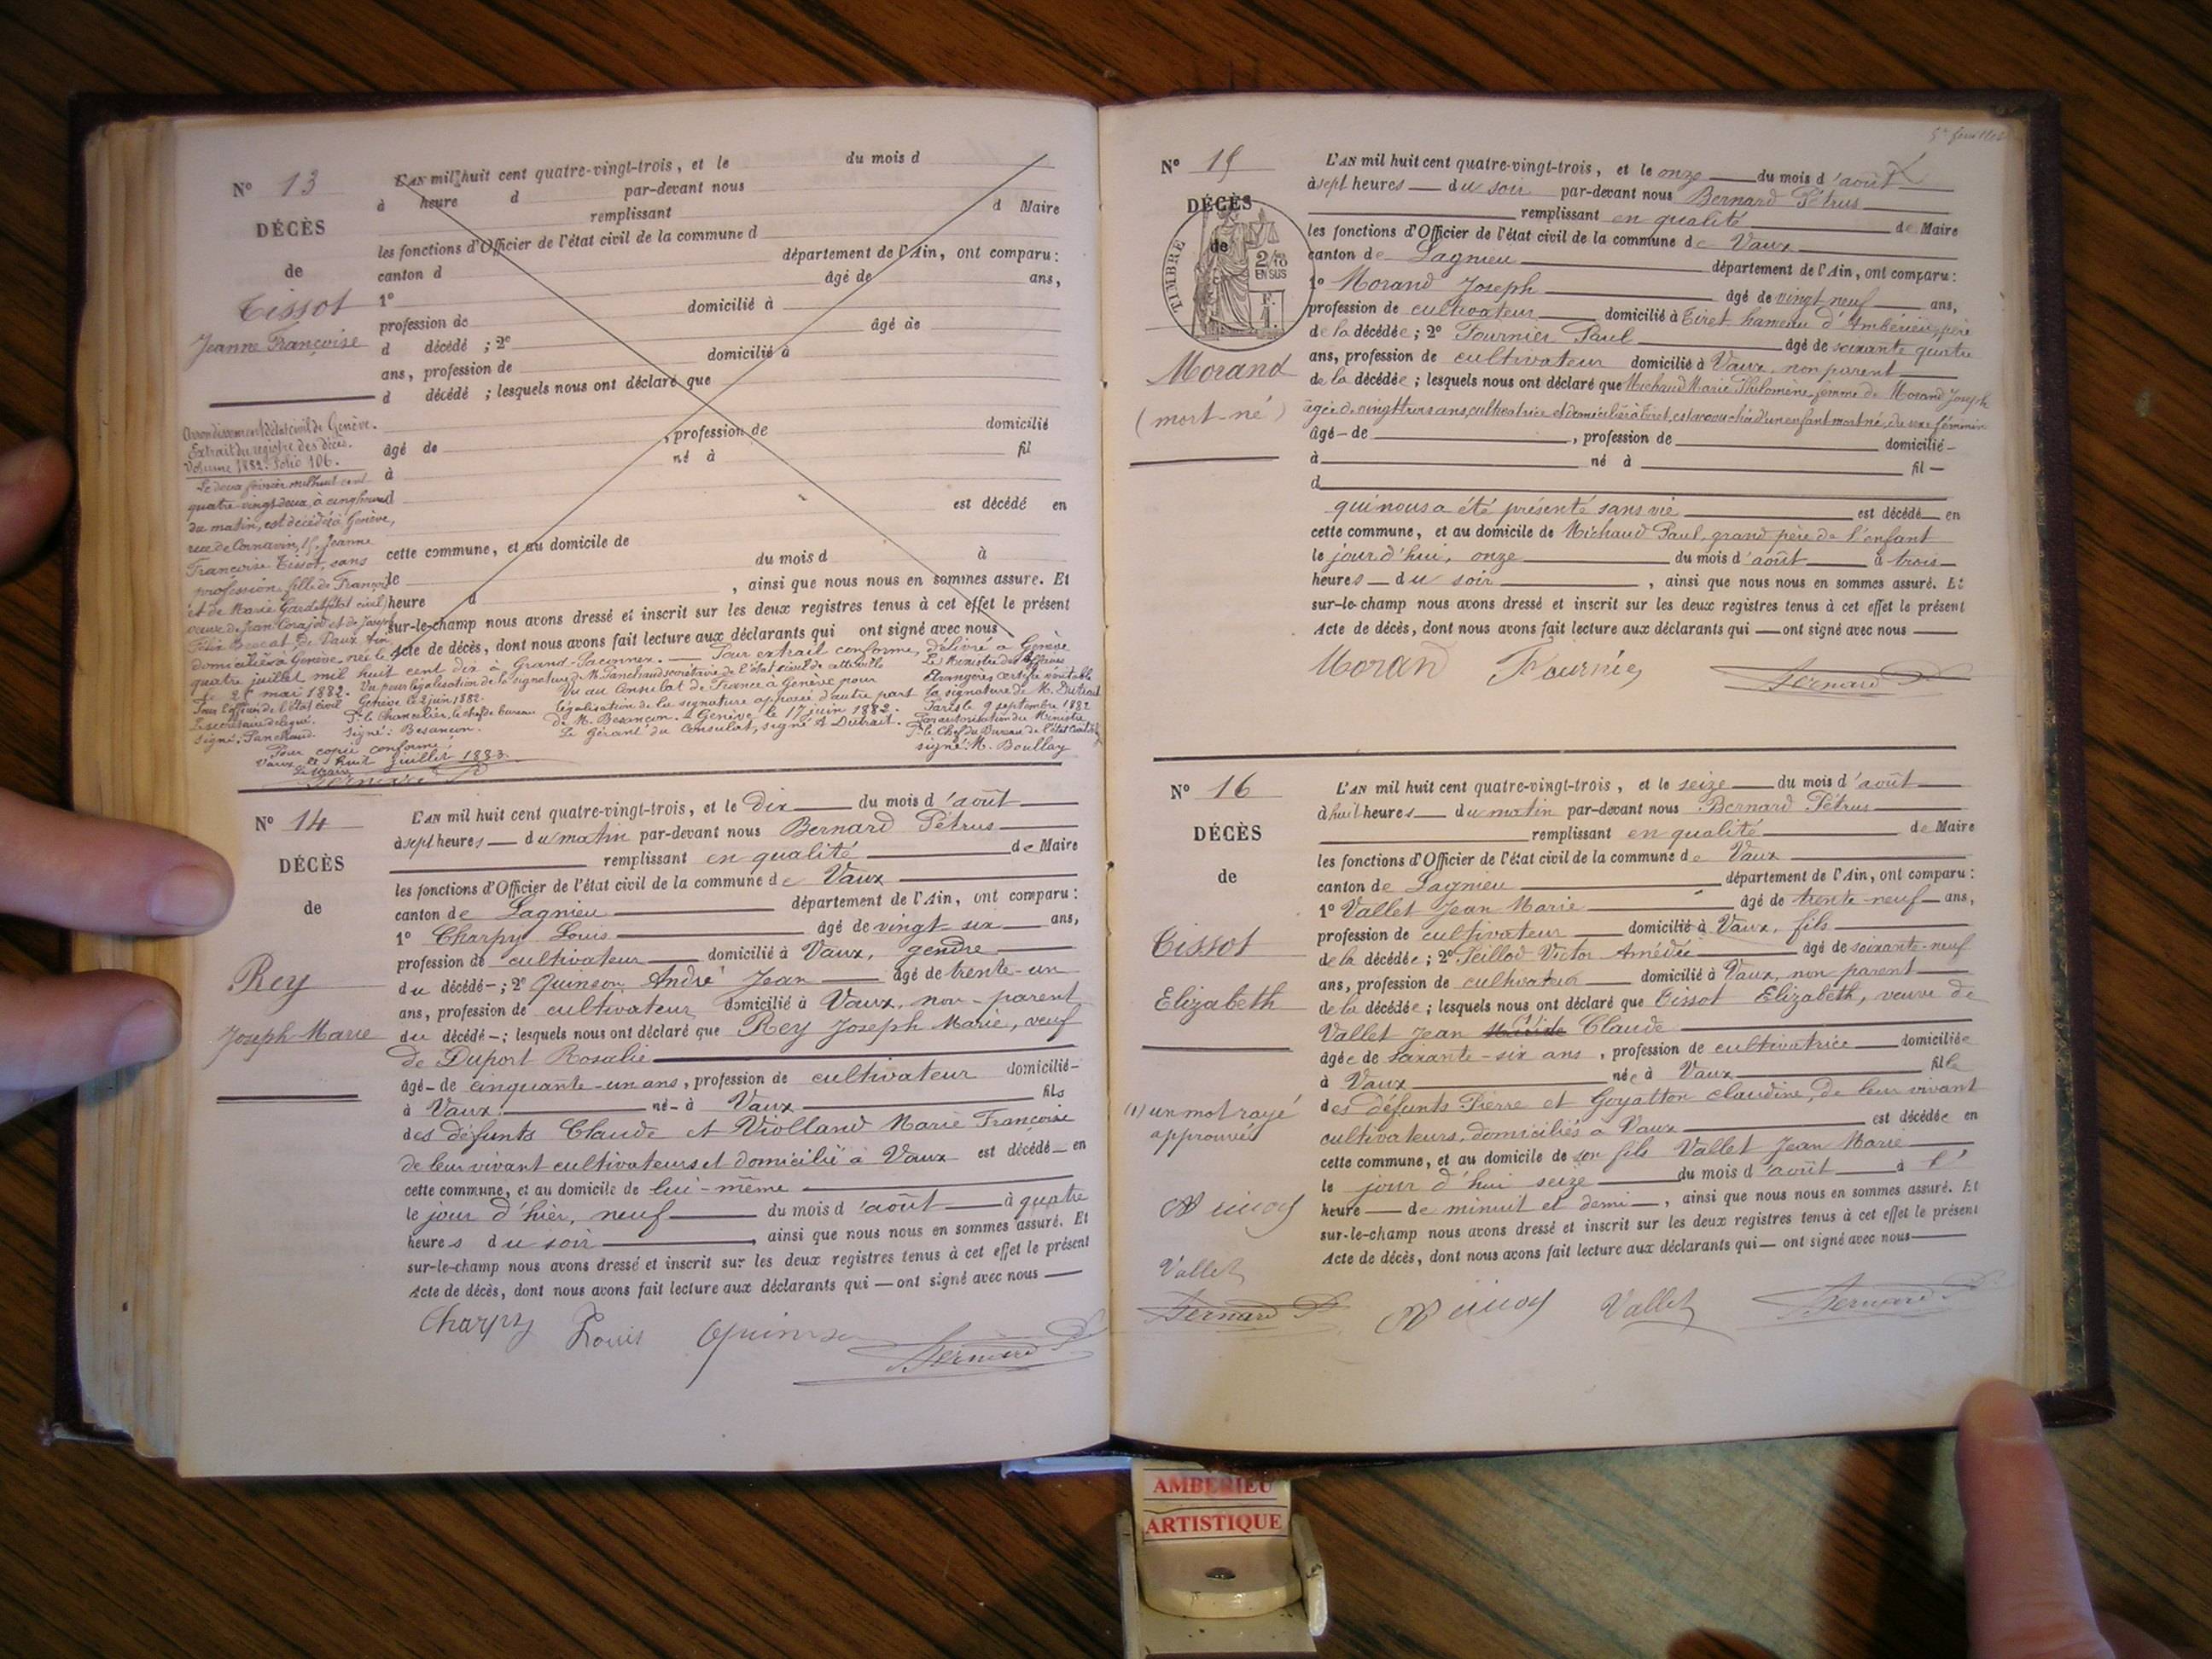 N° 13
DÉCÈS
de
Tissot
Jeanne Françoise
L'AN mil huit cent quatre-vingt-trois, et le du mois d
à heure d par-devant nous
remplissant d Maire
les fonctions d'Officier de l'état civil de la commune d
canton d département de l'Ain, ont comparu :
1° âgé de ans,
profession de domicilié à
d décédé ; 2° âgé de
ans, profession de domicilié à
d décédé ; lesquels nous ont déclaré que
âgé de , profession de domicilié
à né à fil
d
est décédé en
cette commune, et au domicile de
le du mois d à
heure d , ainsi que nous nous en sommes assuré. Et
sur-le-champ nous avons dressé et inscrit sur les deux registres tenus à cet effet le présent
Acte de décès, dont nous avons fait lecture aux déclarants qui ont signé avec nous
Arrondissement d'état civil de Genève.
Extrait du registre des décès.
Volume 1882. Folio 106.
Le deux février mil huit cent
quatre vingt deux, à cinq heures
du matin, est décédée à Genève,
rue de Cornavin, 15, Jeanne
Françoise Tissot, sans
profession, fille de François
et de Marie Gard (état civil)
veuve de Jean Corajod et de Joseph
Félix Bescat de Vaux Ain
domiciliée à Genève, née le
quatre juillet mil huit cent dix à Grand-Saconnex. — Pour extrait conforme, délivré à Genève
le 26 mai 1882.
Pour l'officier de l'Etat Civil
Le secrétaire délégué.
Signé: Panchaud.
Vu pour légalisation de la signature de M. Panchaud secrétaire de l'état civil de cette ville
Genève le 2 juin 1882.
Pr le Chancelier, le chef de bureau
Signé: Besançon.
Vu au Consulat de France à Genève pour
légalisation de la signature apposée d'autre part
de M. Besançon. Genève le 17 juin 1882.
Le Gérant du Consulat, signé A Dutrait.
Le Ministre des Affaires
étrangères certifie véritable
la signature de M. Dutrait
Paris le 9 septembre 1882
Par autorisation du Ministre
Pr le Chef du Bureau de l'état Civil
signé: M. Boullay
Pour copie conforme
Vaux le huit juillet 1883
Le Maire
Bernard P
N° 14
DÉCÈS
de
Rey
Joseph Marie
L'AN mil huit cent quatre-vingt-trois, et le dix du mois d'août
à sept heures du matin par-devant nous Bernard Pétrus
remplissant en qualité de Maire
les fonctions d'Officier de l'état civil de la commune de Vaux
canton de Lagnieu département de l'Ain, ont comparu :
1° Charpy Louis âgé de vingt six ans,
profession de cultivateur domicilié à Vaux, gendre
du décédé - ; 2° Quinson André Jean âgé de trente-un
ans, profession de cultivateur domicilié à Vaux, non-parent
du décédé - ; lesquels nous ont déclaré que Rey Joseph Marie, veuf
de Duport Rosalie
âgé - de cinquante-un ans, profession de cultivateur domicilié -
à Vaux né - à Vaux fils
des défunts Claude et Violland Marie Françoise
de leur vivant cultivateurs et domicilié à Vaux est décédé en
cette commune, et au domicile de lui-même
le jour d'hier, neuf du mois d'août à quatre
heures du soir , ainsi que nous nous en sommes assuré. Et
sur-le-champ nous avons dressé et inscrit sur les deux registres tenus à cet effet le présent
Acte de décès, dont nous avons fait lecture aux déclarants qui — ont signé avec nous —
Charpy Louis Quinson Bernard P
5e feuillet
N° 15
DÉCÈS
de
TIMBRE
2/10
EN SUS
F.
1.
Morand
(mort-né)
L'AN mil huit cent quatre-vingt-trois, et le onze du mois d'août
à sept heures du soir par-devant nous Bernard Pétrus
remplissant en qualité de Maire
les fonctions d'Officier de l'état civil de la commune de Vaux
canton de Lagnieu département de l'Ain, ont comparu :
1° Morand Joseph âgé de vingt neuf ans,
profession de cultivateur domicilié à Tiret hameau d'Ambérieu, père
de la décédée ; 2° Fournier Paul âgé de soixante quatre
ans, profession de cultivateur domicilié à Vaux, non parent
de la décédée ; lesquels nous ont déclaré que Michaud Marie Philomène, femme de Morand Joseph
âgée de vingt trois ans, cultivatrice et domiciliée à Tiret, est accouchée d'un enfant mort né, du sexe féminin
âgé - de , profession de domicilié -
à né à fil —
d
qui nous a été présenté sans vie est décédé en
cette commune, et au domicile de Michaud Paul, grand père de l'enfant
le jour d'hui, onze du mois d'août à trois
heures du soir , ainsi que nous nous en sommes assuré. Et
sur-le-champ nous avons dressé et inscrit sur les deux registres tenus à cet effet le présent
Acte de décès, dont nous avons fait lecture aux déclarants qui — ont signé avec nous —
Morand Fournier Bernard P
N° 16
DÉCÈS
de
Tissot
Elizabeth
(1) un mot rayé
approuvé
Vallet
Bernard P
L'AN mil huit cent quatre-vingt-trois, et le seize du mois d'août
à huit heures du matin par-devant nous Bernard Pétrus
remplissant en qualité de Maire
les fonctions d'Officier de l'état civil de la commune de Vaux
canton de Lagnieu département de l'Ain, ont comparu :
1° Vallet Jean Marie âgé de trente-neuf ans,
profession de cultivateur domicilié à Vaux, fils
de la décédée ; 2° Peillod Victor Amédée âgé de soixante-neuf
ans, profession de cultivateur domicilié à Vaux, non parent
de la décédée ; lesquels nous ont déclaré que Tissot Elizabeth, veuve de
Vallet Jean (1) Claude
âgée de soixante-six ans, profession de cultivatrice domiciliée
à Vaux née à Vaux fille
des défunts Pierre et Goyatton Claudine, de leur vivant
cultivateurs, domiciliés à Vaux est décédée en
cette commune, et au domicile de son fils Vallet Jean Marie
le jour d'hui seize du mois d'août à l'
heure de minuit et demi , ainsi que nous nous en sommes assuré. Et
sur-le-champ nous avons dressé et inscrit sur les deux registres tenus à cet effet le présent
Acte de décès, dont nous avons fait lecture aux déclarants qui — ont signé avec nous —
Vallet Bernard P
AMBERIEU
ARTISTIQUE